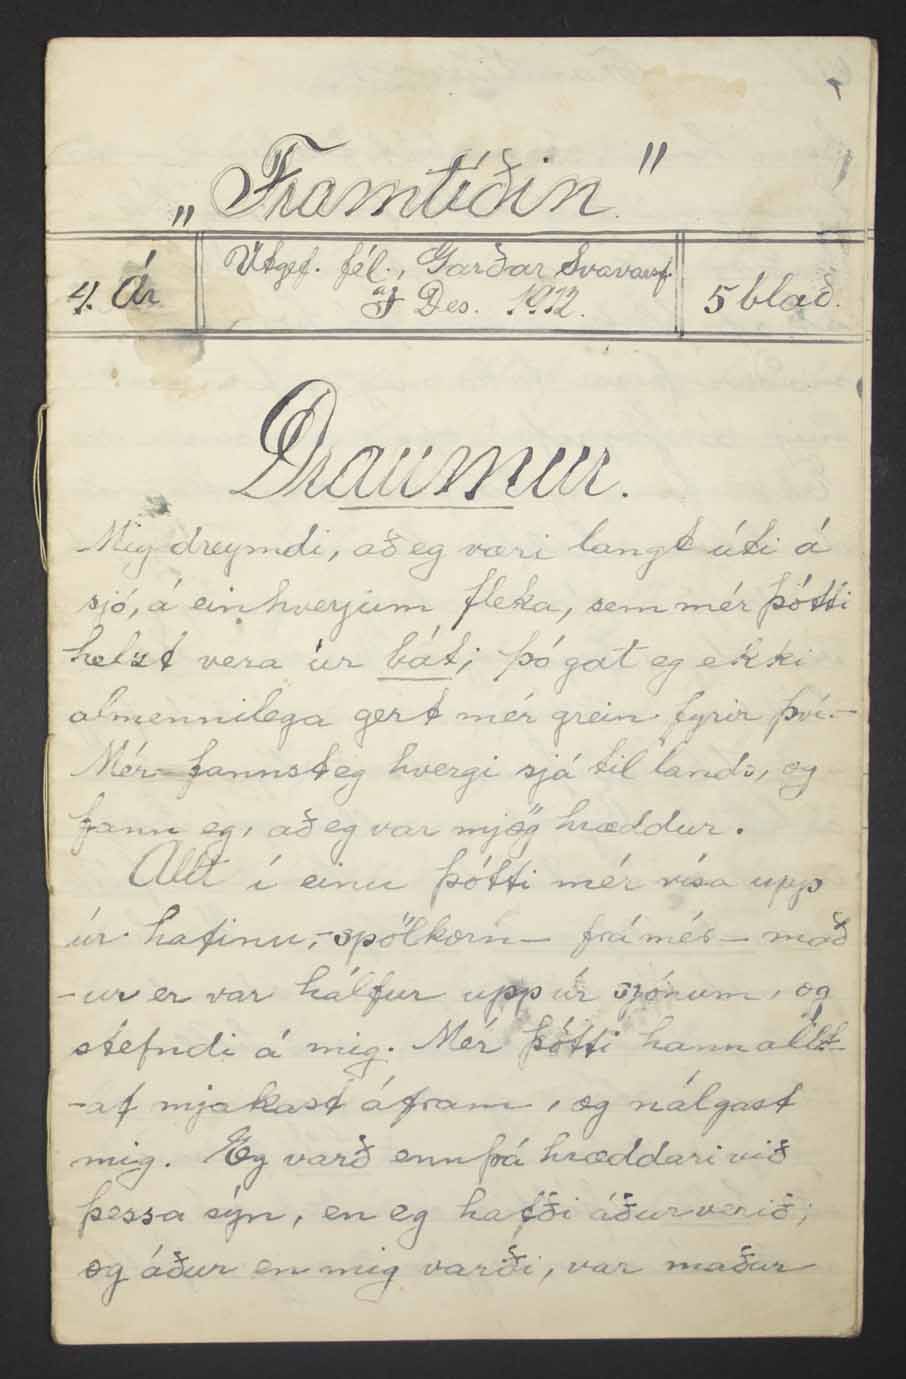 „Framtíðin."
4. Ár
Útgef. fél., Garðar Svavarsf.
Des. 1912.
5 blað.
Draumur.
Mig dreymdi, að eg væri langt úti á
sjó, á einhverjum fleka, sem mér þótti
helzt vera úr bát; þó gat eg ekki
almennilega gert mér grein fyrir því.-
Mér fannst eg hvergi sjá til lands, og
fann eg, að eg var mjög hræddur.
Allt í einu þótti mér rísa upp
úr hafinu,- spölkorn - frá mér - mað
-ur er var hálfur upp úr sjónum, og
stefndi á mig. Mér þótti hann allt-
-af mjakast áfram, og nálgast
mig. Eg varð ennþá hræddari við
þessa sýn, en eg hafði áður verið;
og áður en mig varði, var maður